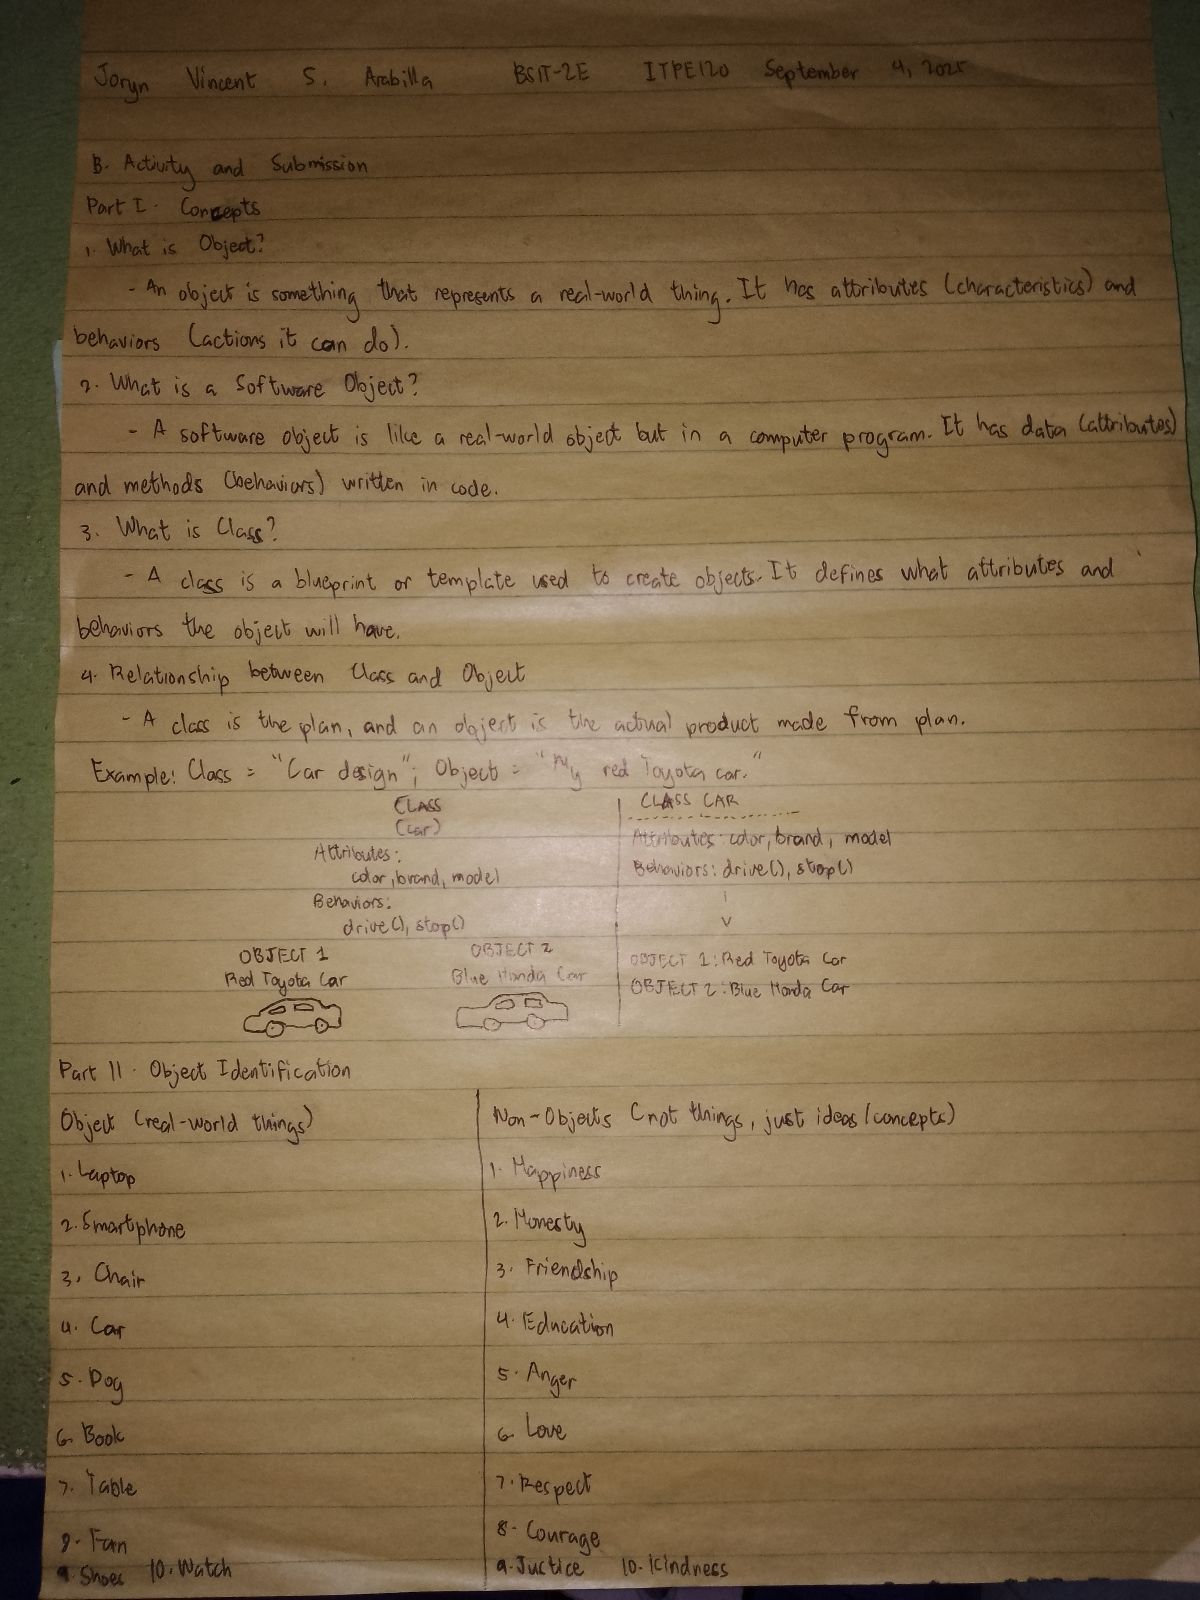 Joryn Vincent S. Arabilla BSIT-2E ITPE120 September 4, 2025
B. Activity and Submission
Part I. Concepts
1. What is Object?
- An object is something that represents a real-world thing. It has attributes (characteristics) and
behaviors (actions it can do).
2. What is a Software Object?
- A software object is like a real-world object but in a computer program. It has data (attributes)
and methods (behaviors) written in code.
3. What is Class?
- A class is a blueprint or template used to create objects. It defines what attributes and
behaviors the object will have.
4. Relationship between Class and Object
- A class is the plan, and an object is the actual product made from plan.
Example: Class = "Car design"; Object = "My red Toyota car."
CLASS
(car)
Attributes:
color, brand, model
Behaviors:
drive(), stop()
OBJECT 1
Red Toyota Car
OBJECT 2
Blue Honda Car
CLASS CAR
Attributes: color, brand, model
Behaviors: drive(), stop()
OBJECT 1: Red Toyota Car
OBJECT 2: Blue Honda Car
Part II. Object Identification
Object (real-world things)
1. Laptop
2. Smartphone
3. Chair
4. Car
5. Dog
6. Book
7. Table
8. Fan
9. Shoes 10. Watch
Non-Objects (not things, just ideas/concepts)
1. Happiness
2. Honesty
3. Friendship
4. Education
5. Anger
6. Love
7. Respect
8. Courage
9. Justice 10. Kindness